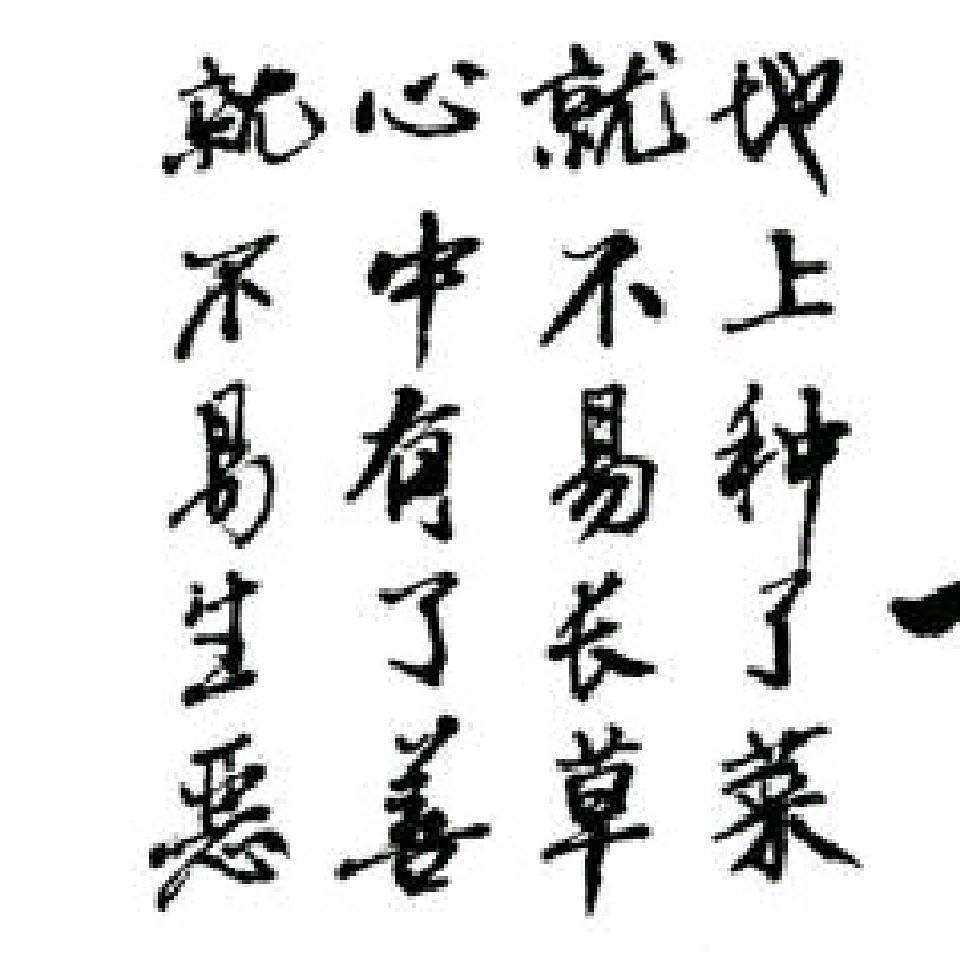 地上种了菜
就不易长草
心中有了善
就不易生恶